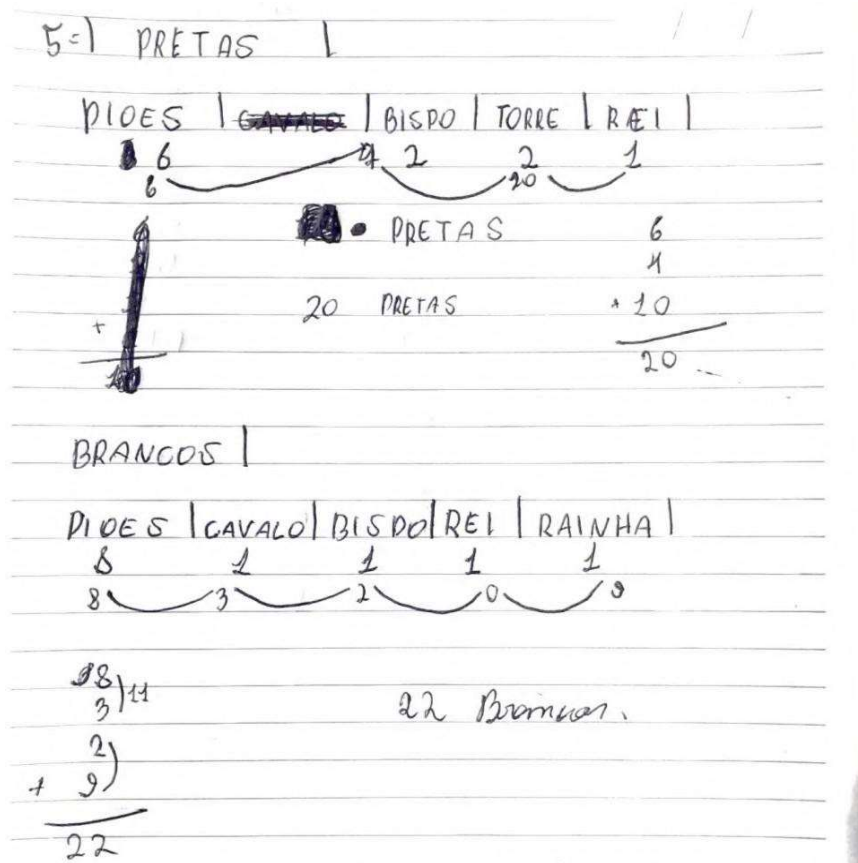 5=) PRETAS |
PIOES | CAVALO | BISPO | TORRE | REI |
6 2 2 1
6 4 20
PRETAS 6
4
20 PRETAS + 10
+
20
BRANCOS |
PIOES | CAVALO | BISPO | REI | RAINHA |
8 1 1 1 1
8 3 2 0 9
8
3 ) 11
22 Brancas.
2
+ 9 )
22